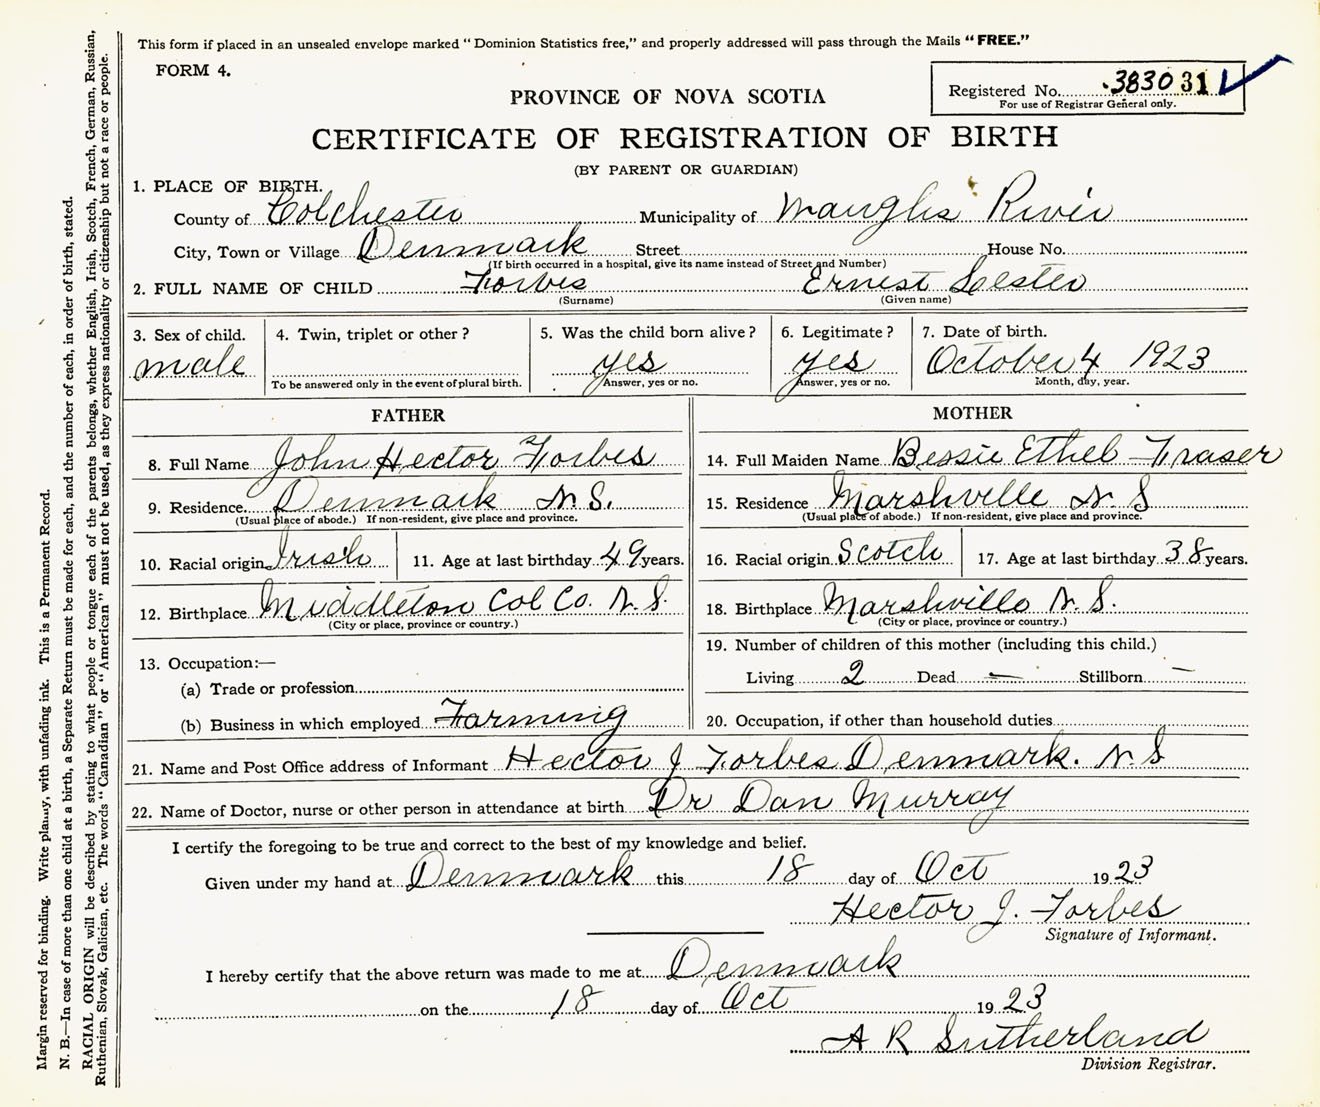 This form if placed in an unsealed envelope marked "Dominion Statistics free," and properly addressed will pass through the Mails "FREE."
FORM 4.
Registered No. 3830 31
For use of Registrar General only.
PROVINCE OF NOVA SCOTIA
CERTIFICATE OF REGISTRATION OF BIRTH
(BY PARENT OR GUARDIAN)
1. PLACE OF BIRTH.
County of Colchester Municipality of Waughs River
City, Town or Village Denmark Street House No.
(If birth occurred in a hospital, give its name instead of Street and Number)
2. FULL NAME OF CHILD Forbes Ernest Lester
(Surname) (Given name)
3. Sex of child. 4. Twin, triplet or other? 5. Was the child born alive? 6. Legitimate? 7. Date of birth.
male yes yes October 4 1923
To be answered only in the event of plural birth. Answer, yes or no. Answer, yes or no. Month, day, year.
FATHER
8. Full Name John Hector Forbes
9. Residence Denmark N.S.
(Usual place of abode.) If non-resident, give place and province.
10. Racial origin Irish 11. Age at last birthday 49 years.
12. Birthplace Middleton Col Co. N.S.
(City or place, province or country.)
13. Occupation:—
(a) Trade or profession
(b) Business in which employed Farming
MOTHER
14. Full Maiden Name Bessie Ethel Fraser
15. Residence Marshville N.S
(Usual place of abode.) If non-resident, give place and province.
16. Racial origin Scotch 17. Age at last birthday 38 years.
18. Birthplace Marshville N.S.
(City or place, province or country.)
19. Number of children of this mother (including this child.)
Living 2 Dead — Stillborn —
20. Occupation, if other than household duties
21. Name and Post Office address of Informant Hector J Forbes Denmark. N.S
22. Name of Doctor, nurse or other person in attendance at birth Dr Dan Murray
I certify the foregoing to be true and correct to the best of my knowledge and belief.
Given under my hand at Denmark this 18 day of Oct 1923
Hector J. Forbes
Signature of Informant.
I hereby certify that the above return was made to me at Denmark
on the 18 day of Oct 1923
A R Sutherland
Division Registrar.
Margin reserved for binding. Write plainly, with unfading ink. This is a Permanent Record.
N. B.—In case of more than one child at a birth, a Separate Return must be made for each, and the number of each, in order of birth, stated.
RACIAL ORIGIN will be described by stating to what people or tongue each of the parents belongs, whether English, Irish, Scotch, French, German, Russian,
Ruthenian, Slovak, Galician, etc. The words "Canadian" or "American" must not be used, as they express nationality or citizenship but not a race or people.